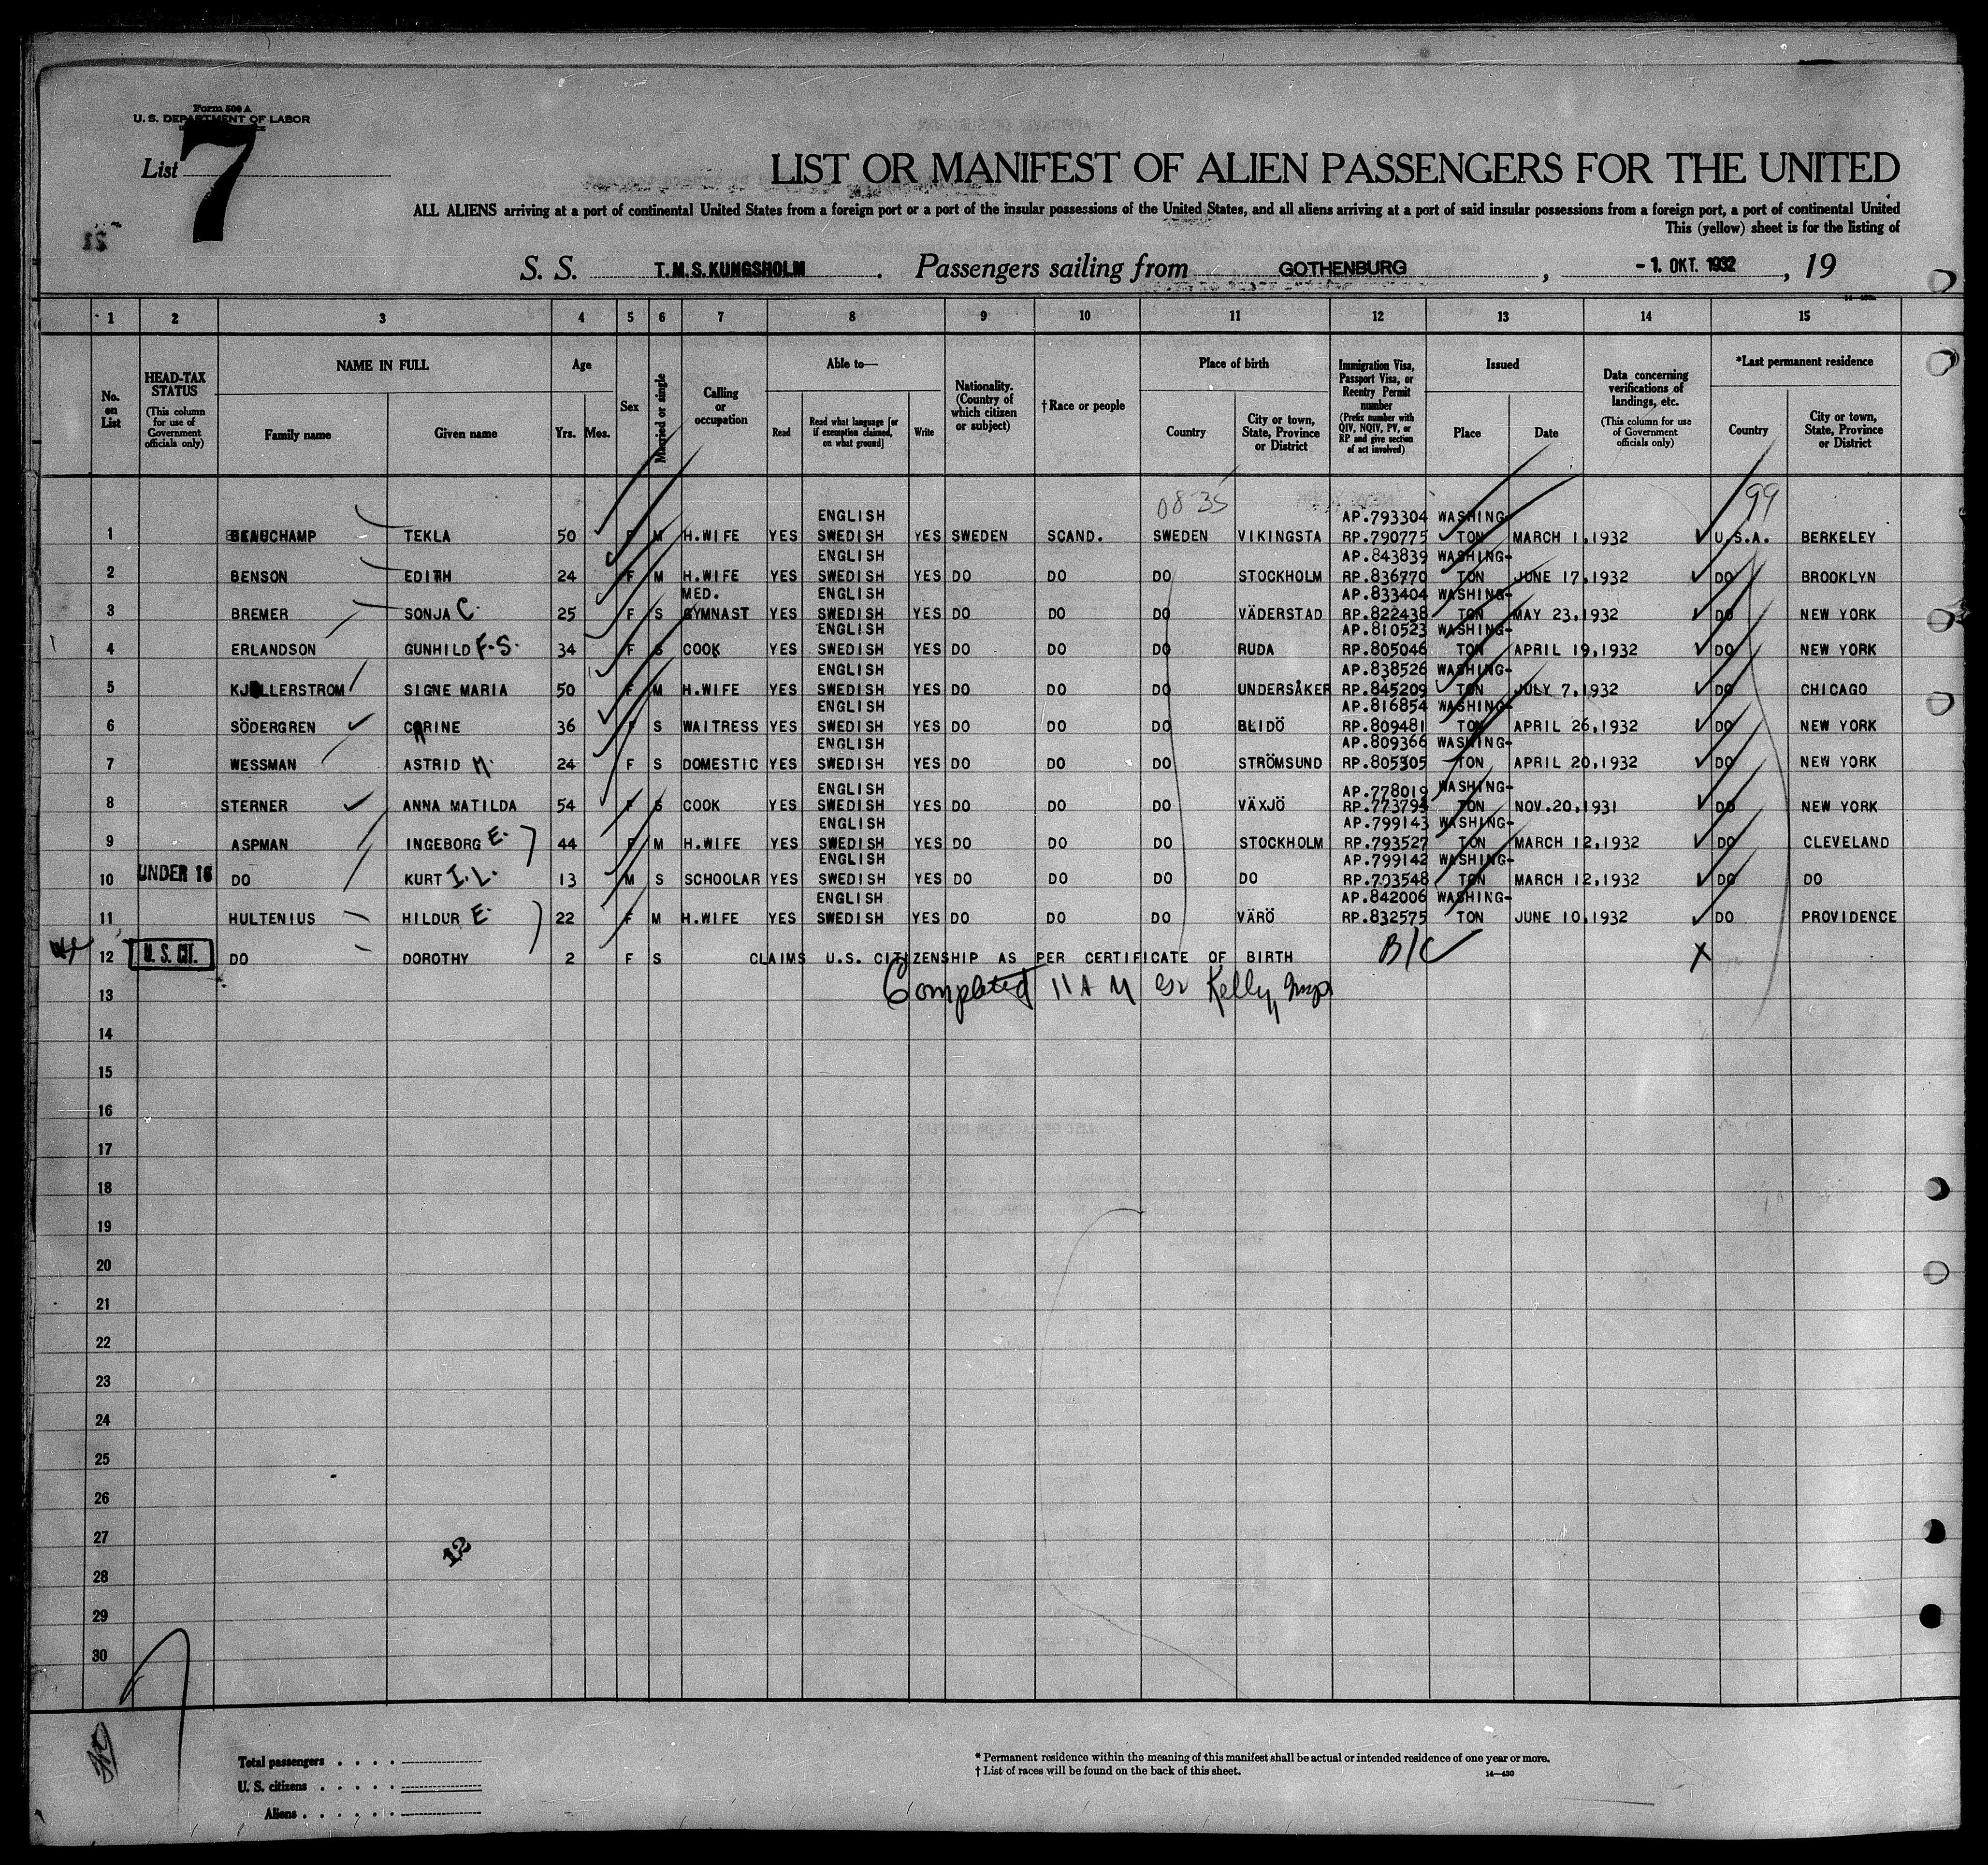 Form 500 A
U. S. DEPARTMENT OF LABOR
List 7
LIST OR MANIFEST OF ALIEN PASSENGERS FOR THE UNITED
ALL ALIENS arriving at a port of continental United States from a foreign port or a port of the insular possessions of the United States, and all aliens arriving at a port of said insular possessions from a foreign port, a port of continental United
This (yellow) sheet is for the listing of
S. S. T.M.S.KUNGSHOLM. Passengers sailing from GOTHENBURG, -1. OKT. 1932, 19
1 2 3 4 5 6 7 8 9 10 11 12 13 14 15
No. on List
HEAD-TAX STATUS (This column for use of Government officials only)
NAME IN FULL
Family name
Given name
Age
Yrs. Mos.
Sex
Married or single
Calling or occupation
Able to—
Read
Read what language [or if exemption claimed, on what ground]
Write
Nationality. (Country of which citizen or subject)
†Race or people
Place of birth
Country
City or town, State, Province or District
Immigration Visa, Passport Visa, or Reentry Permit number (Prefix number with QIV, NQIV, PV, or RP and give section of act involved)
Issued
Place
Date
Data concerning verifications of landings, etc. (This column for use of Government officials only)
*Last permanent residence
Country
City or town, State, Province or District
08-35 99
ENGLISH AP.793304 WASHING-
1 BEAUCHAMP TEKLA 50 F M H.WIFE YES SWEDISH YES SWEDEN SCAND. SWEDEN VIKINGSTA RP.790775 TON MARCH 1,1932 U.S.A. BERKELEY
ENGLISH AP.843839 WASHING-
2 BENSON EDITH 24 F M H.WIFE YES SWEDISH YES DO DO DO STOCKHOLM RP.836770 TON JUNE 17,1932 DO BROOKLYN
MED. ENGLISH AP.833404 WASHING-
3 BREMER SONJA C. 25 F S GYMNAST YES SWEDISH YES DO DO DO VÄDERSTAD RP.822438 TON MAY 23,1932 DO NEW YORK
ENGLISH AP.810523 WASHING-
4 ERLANDSON GUNHILD F.S. 34 F S COOK YES SWEDISH YES DO DO DO RUDA RP.805046 TON APRIL 19,1932 DO NEW YORK
ENGLISH AP.838526 WASHING-
5 KJELLERSTROM SIGNE MARIA 50 F M H.WIFE YES SWEDISH YES DO DO DO UNDERSÅKER RP.845209 TON JULY 7,1932 DO CHICAGO
ENGLISH AP.816854 WASHING-
6 SÖDERGREN CARINE 36 F S WAITRESS YES SWEDISH YES DO DO DO BLIDÖ RP.809481 TON APRIL 26,1932 DO NEW YORK
ENGLISH AP.809366 WASHING-
7 WESSMAN ASTRID M. 24 F S DOMESTIC YES SWEDISH YES DO DO DO STRÖMSUND RP.805305 TON APRIL 20,1932 DO NEW YORK
ENGLISH AP.778019 WASHING-
8 STERNER ANNA MATILDA 54 F S COOK YES SWEDISH YES DO DO DO VÄXJÖ RP.773794 TON NOV.20,1931 DO NEW YORK
ENGLISH AP.799143 WASHING-
9 ASPMAN INGEBORG E. 44 F M H.WIFE YES SWEDISH YES DO DO DO STOCKHOLM RP.793527 TON MARCH 12,1932 DO CLEVELAND
ENGLISH AP.799142 WASHING-
10 UNDER 16 DO KURT I.L. 13 M S SCHOOLAR YES SWEDISH YES DO DO DO DO RP.793548 TON MARCH 12,1932 DO DO
ENGLISH AP.842006 WASHING-
11 HULTENIUS HILDUR E. 22 F M H.WIFE YES SWEDISH YES DO DO DO VÄRÖ RP.832575 TON JUNE 10,1932 DO PROVIDENCE
12 U.S. CIT. DO DOROTHY 2 F S CLAIMS U.S. CITIZENSHIP AS PER CERTIFICATE OF BIRTH B/C X
Completed 11 A M Kelly, Insp
13
14
15
16
17
18
19
20
21
22
23
24
25
26
27
12
28
29
30
Total passengers . . . .
U. S. citizens . . . . .
Aliens . . . . . .
* Permanent residence within the meaning of this manifest shall be actual or intended residence of one year or more.
† List of races will be found on the back of this sheet.
14—430